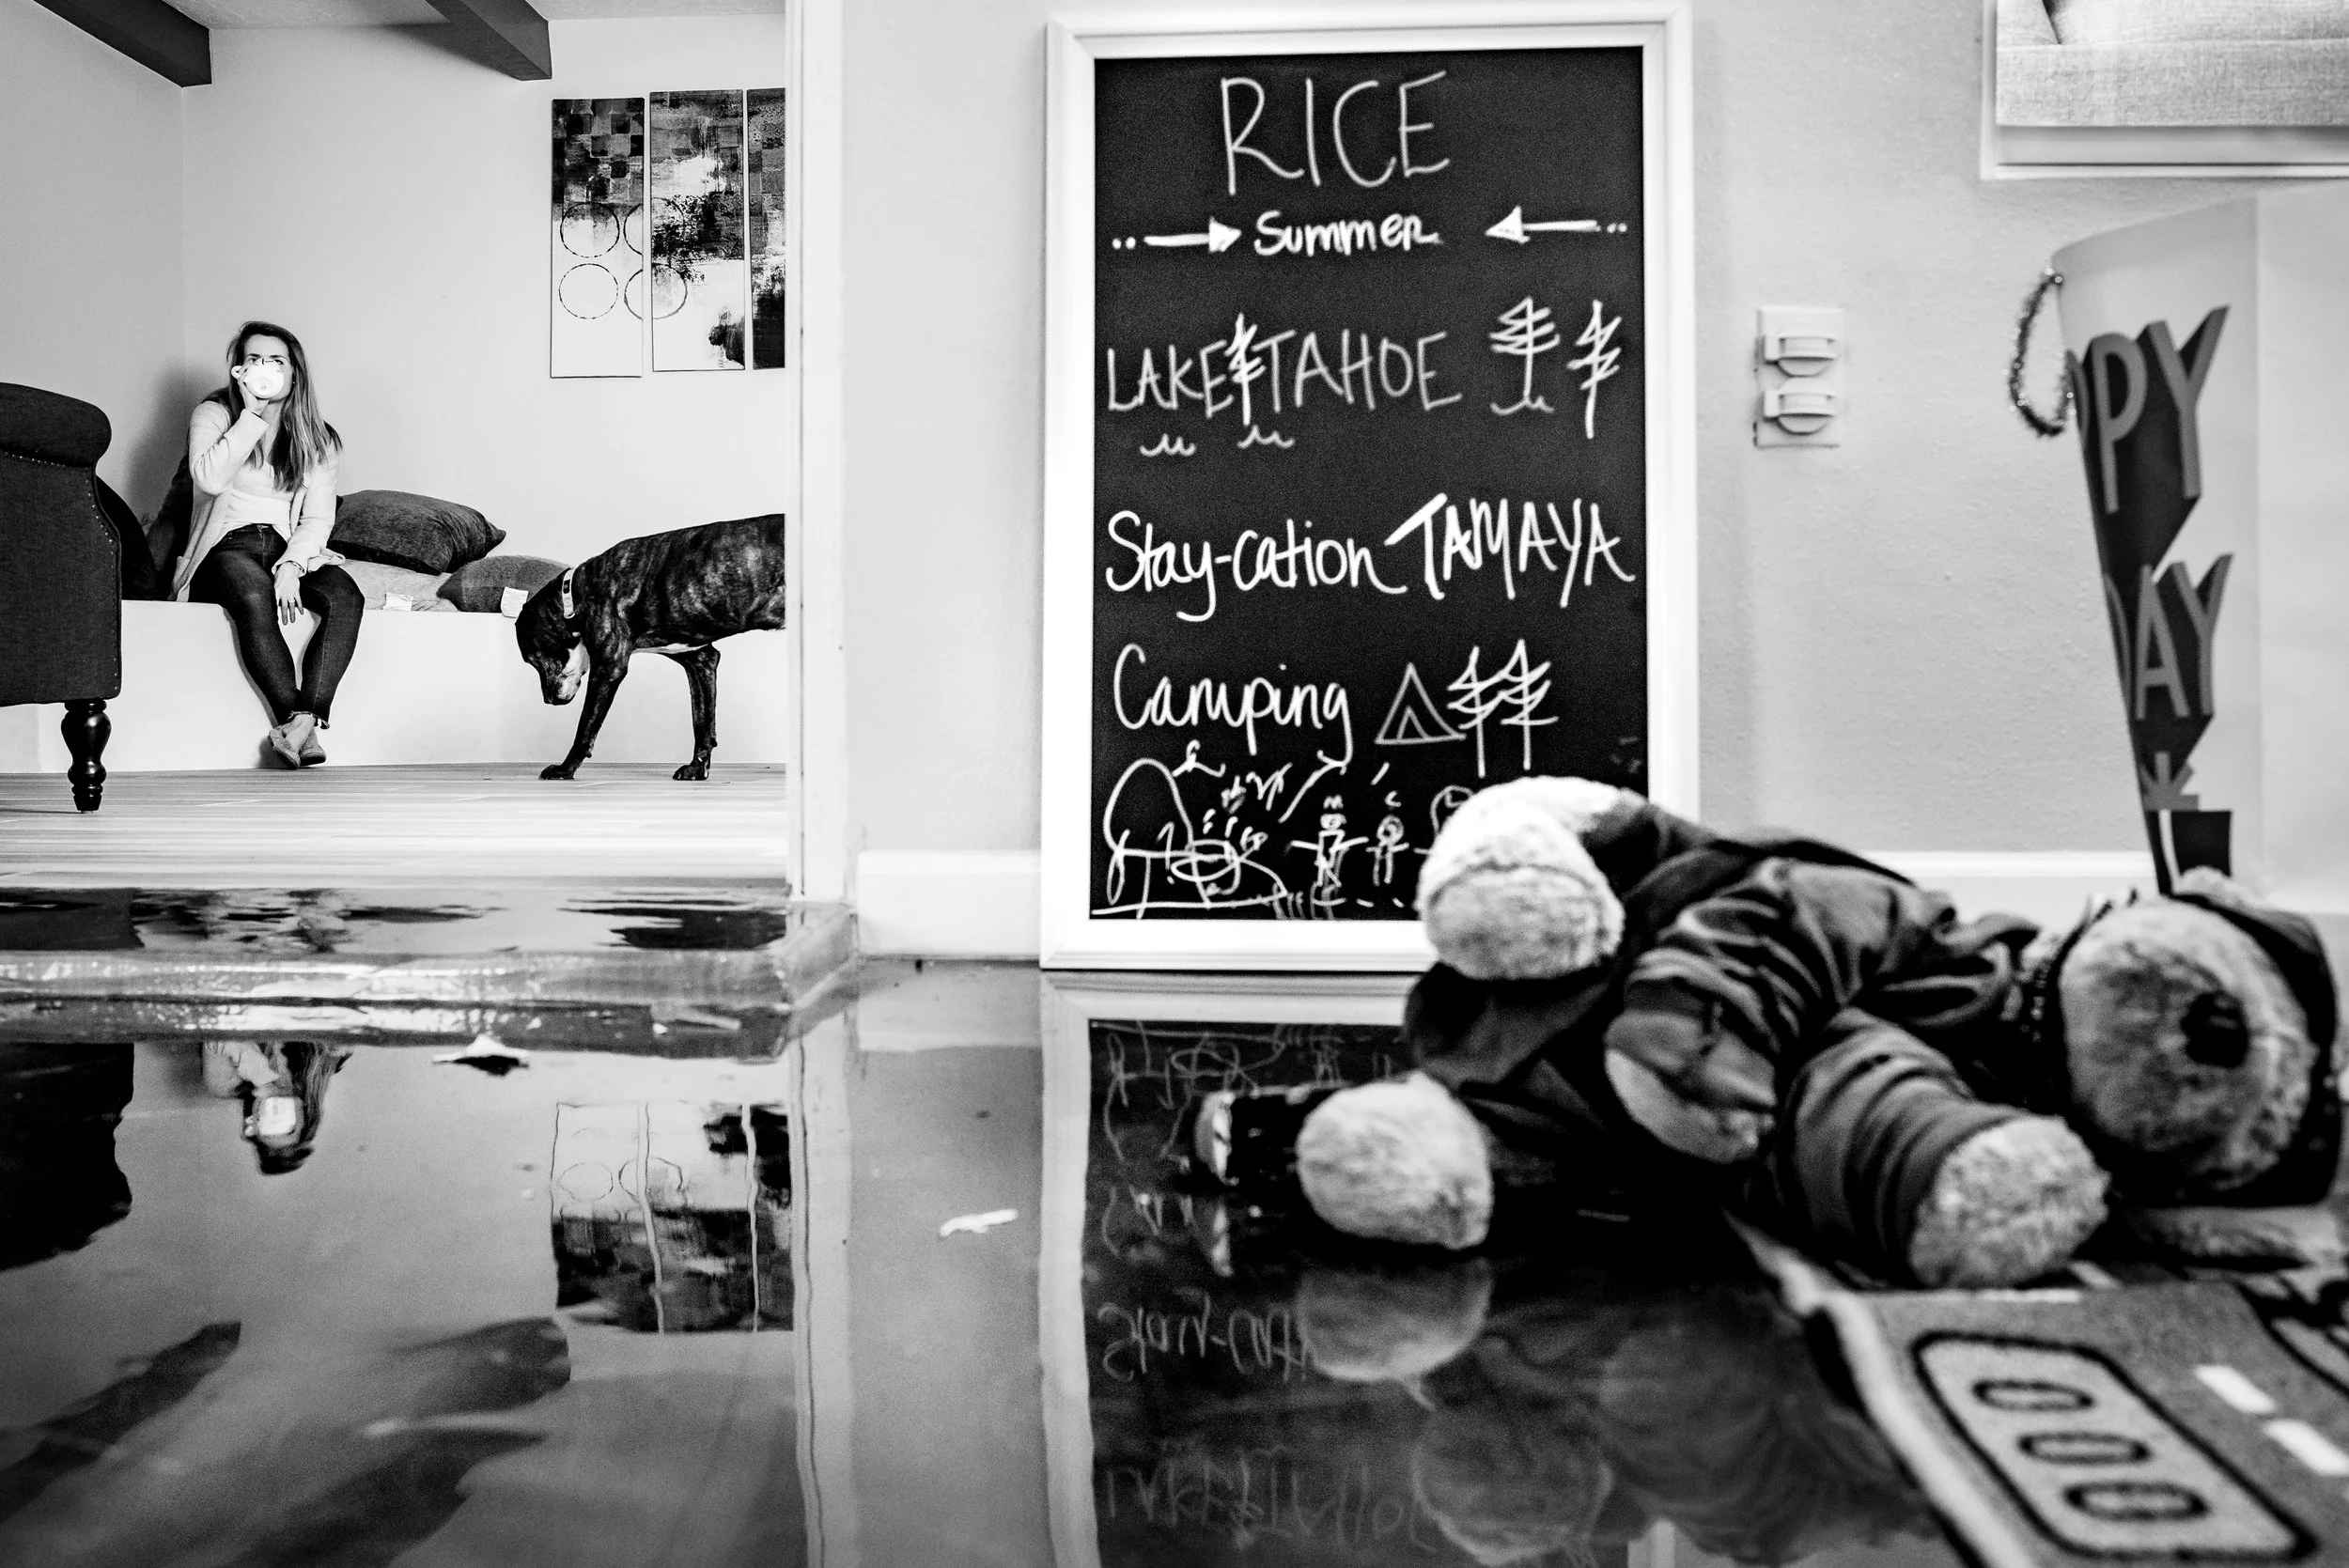 RICE
Summer
LAKE TAHOE
Stay-cation TAMAYA
Camping
PPY
DAY
000